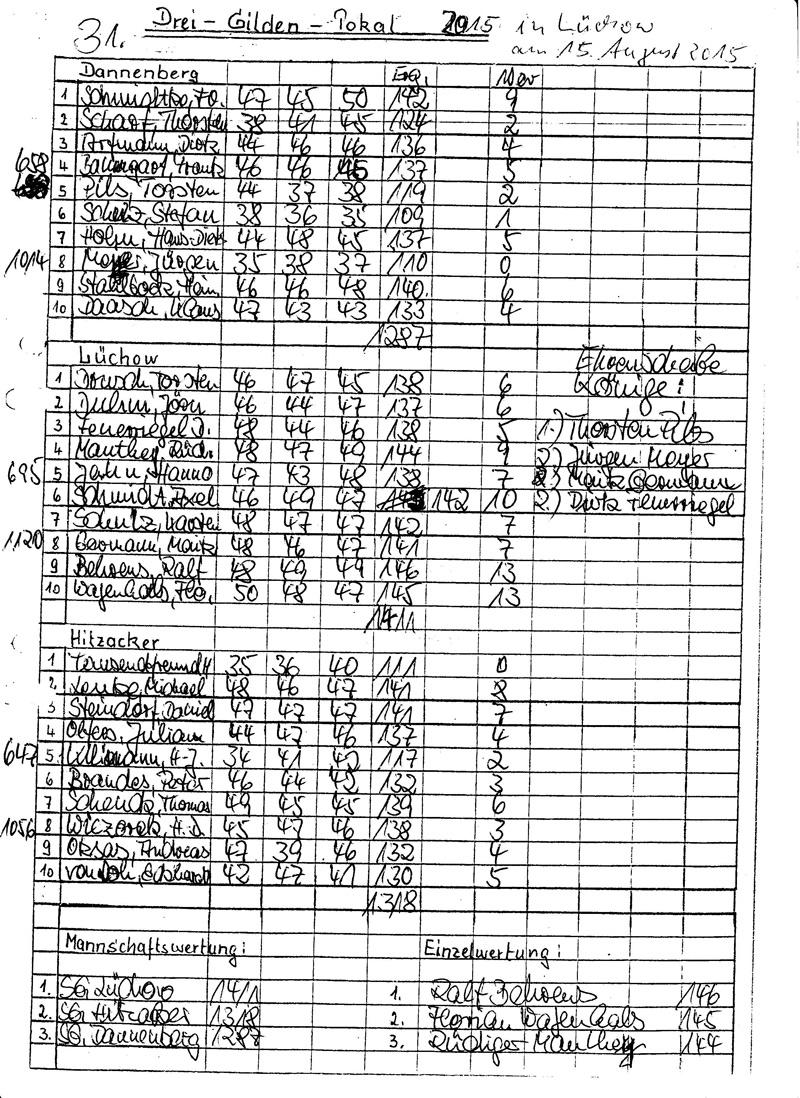 31. Drei - Gilden - Pokal 2015 in Lüchow
am 15. August 2015
Dannenberg Erg. 10er
1 Schmidtke, Fo. 47 45 50 142 9
2 Scharf, Thorsten 38 41 45 124 2
3 Artmann, Dietz 44 46 46 136 4
658 4 46 46 45 137 5
5 Pils, Torsten 44 37 38 119 2
6 Schulz, Stefan 38 36 35 109 1
7 Hans-Diet 44 48 45 137 5
1014 8 Meyer, Jürgen 35 38 37 110 0
9 46 46 48 140 6
10 Daasch, Klaus 47 43 43 133 4
1287
Lüchow
Ehrenscheibe
1 Torsten 46 47 45 138 6 Könige:
2 Jörn 46 44 47 137 6
3 Feuerriegel D. 48 44 46 138 5 1.) Thorsten Pils
4 Manthey, 48 47 49 144 9 2.) Jürgen Meyer
695 5 Jahn, Hanno 47 43 48 138 7 Moritz Germann
6 Schmidt, Axel 46 49 47 142 10 2.) Dietz Feuerriegel
7 Schulz, Karsten 48 47 47 142 7
1120 8 Germann, Moritz 48 46 47 141 7
9 Behrens, Ralf 48 49 49 146 13
10 Wagenhals, Flo. 50 48 47 145 13
1411
Hitzacker
1 Tausendfreund H 35 36 40 111 0
2. Michael 48 46 47 141 8
3 Steindorf, Daniel 47 47 47 141 7
4 Julian 44 47 46 137 4
647 5. H-J. 34 41 42 117 2
6 Brandes, Peter 46 44 42 132 3
7 Schenck, Thomas 49 45 45 139 6
1056 8 Wiczorek, H.J. 45 47 46 138 3
9 Andreas 47 39 46 132 4
10 42 47 41 130 5
1318
Mannschaftswertung: Einzelwertung:
1. SG Lüchow 1411 1. Ralf Behrens 146
2. SG Hitzacker 1318 2. Florian Wagenhals 145
3. SG. Dannenberg 1287 3. Rüdiger Manthey 144